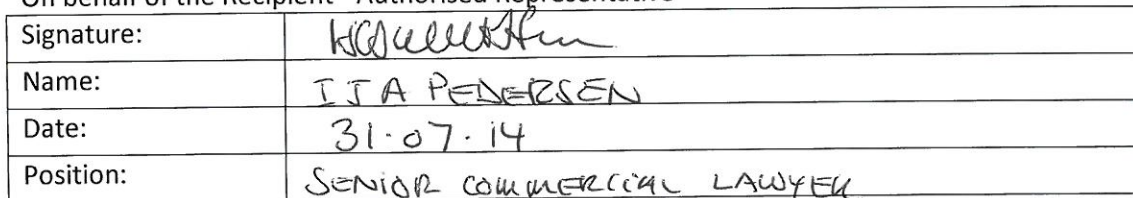 On behalf of the Recipient - Authorised Representative
Signature:
Name: IJA PEDERSEN
Date: 31.07.14
Position: SENIOR COMMERCIAL LAWYER